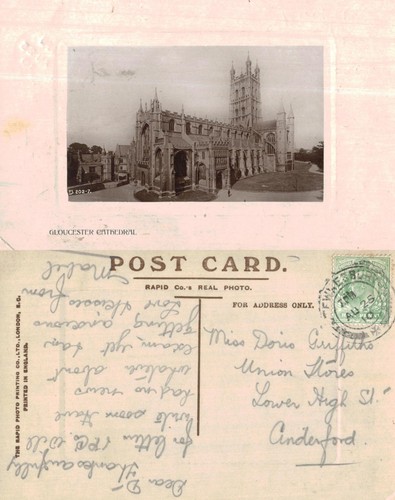 M 202-7
GLOUCESTER CATHEDRAL
POST CARD.
RAPID Co.'s REAL PHOTO.
FOR ADDRESS ONLY.
THE RAPID PHOTO PRINTING CO., LTD., LONDON, E.C.
PRINTED IN ENGLAND.
Dear D
Thanks awfully
for letter & P.C. Will
write soon have
had no news
about
exam yet am
getting anxious
Love from
Mabel
Miss Doris Griffiths
Union Stores
Lower High St
Cinderford
AU 25
10